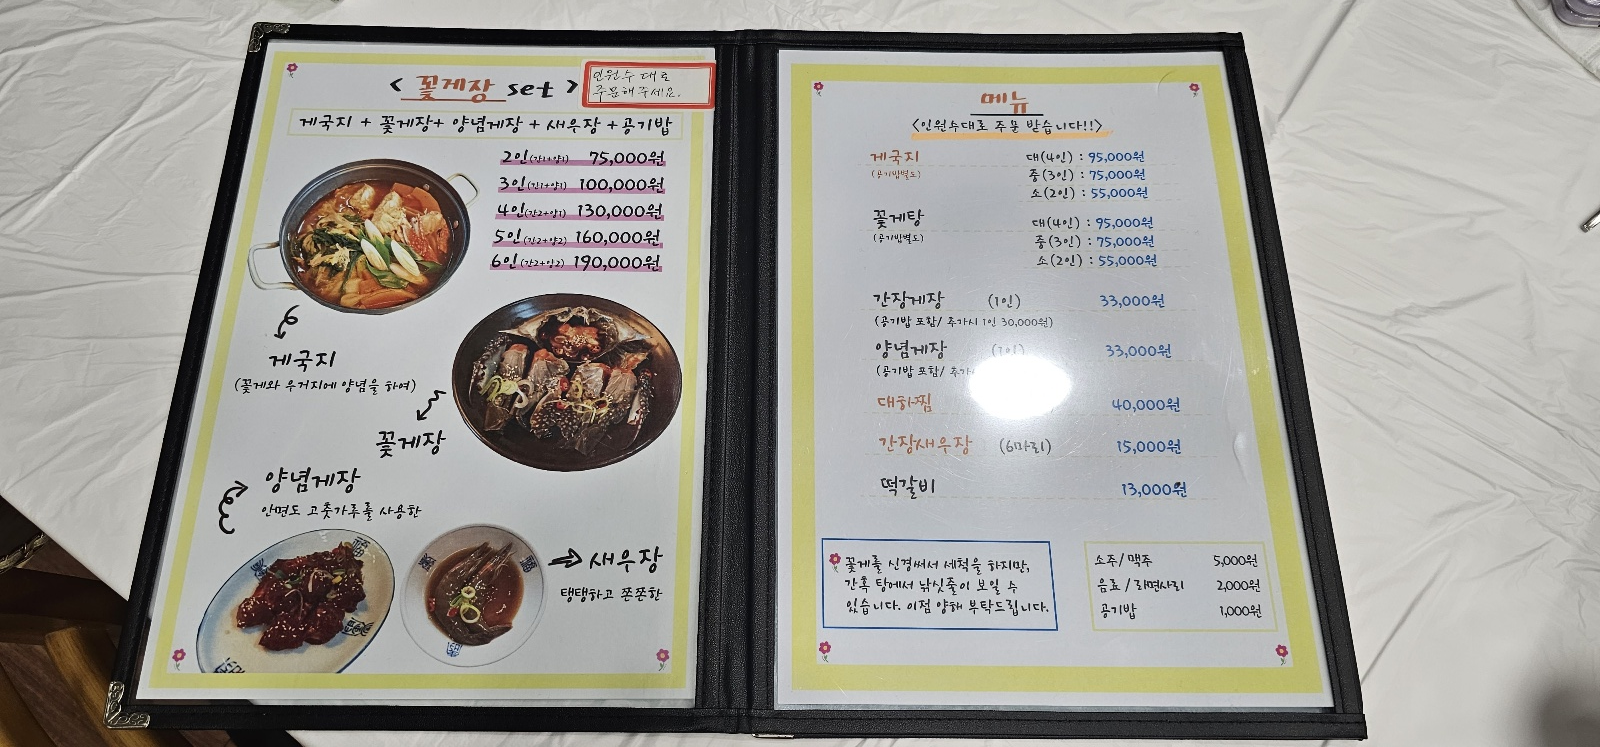 < 꽃게장 set >
인원수 대로
주문해주세요.
게국지 + 꽃게장 + 양념게장 + 새우장 + 공기밥
2인(간1+양1) 75,000원
3인(간1+양1) 100,000원
4인(간2+양1) 130,000원
5인(간2+양2) 160,000원
6인(간2+양2) 190,000원
게국지
(꽃게와 우거지에 양념을 하여)
꽃게장
양념게장
안면도 고춧가루를 사용한
새우장
탱탱하고 쫀쫀한
메뉴
<인원수대로 주문 받습니다!!>
게국지 대(4인) : 95,000원
(공기밥별도) 중(3인) : 75,000원
소(2인) : 55,000원
꽃게탕 대(4인) : 95,000원
(공기밥별도) 중(3인) : 75,000원
소(2인) : 55,000원
간장게장 (1인) 33,000원
(공기밥 포함/ 추가시 1인 30,000원)
양념게장 (1인) 33,000원
(공기밥 포함/
대하찜 40,000원
간장새우장 (6마리) 15,000원
떡갈비 13,000원
꽃게를 신경써서 세척을 하지만,
간혹 탕에서 낚싯줄이 보일 수
있습니다. 이점 양해 부탁드립니다.
소주/맥주 5,000원
음료/라면사리 2,000원
공기밥 1,000원